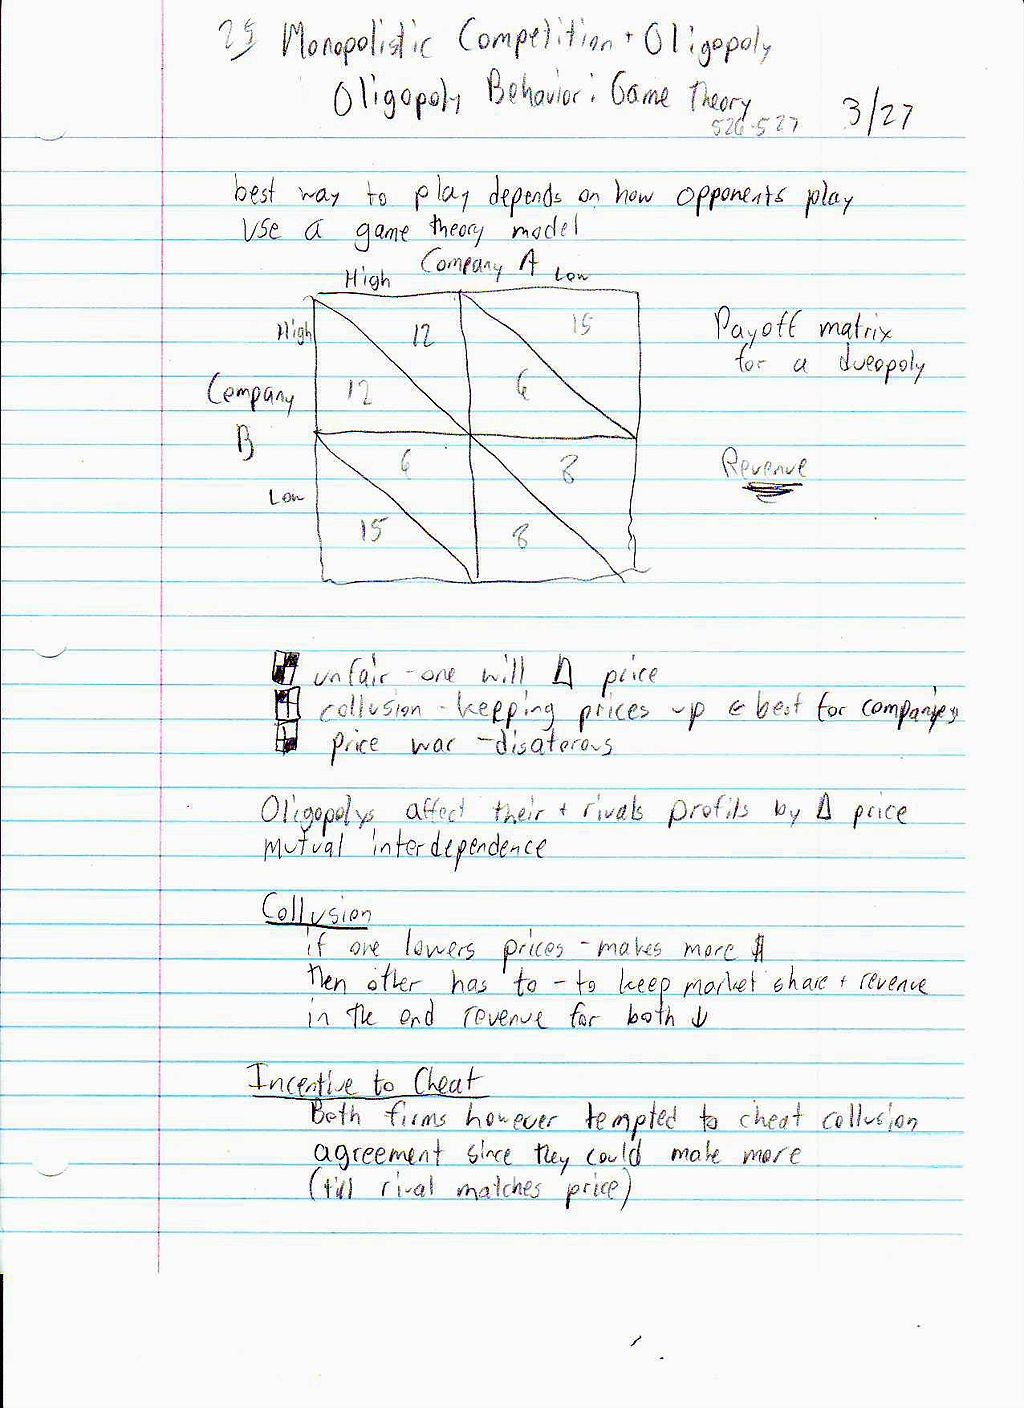 25 Monopolistic Competition + Oligopoly
Oligopoly Behavior: Game Theory
526-527 3/27
best way to play depends on how opponents play
use a game theory model
Company A
High Low
High 12 15
Company 12 6
B
6 8
Low
15 8
Payoff matrix
for a dueopoly
Revenue
unfair - one will Δ price
collusion - keeping prices up ← best for companies
price war - disaterous
Oligopolys affect their + rivals profits by Δ price
mutual interdependence
Collusion
if one lowers prices - makes more $
then other has to - to keep market share + revenue
in the end revenue for both ↓
Incentive to Cheat
Both firms however tempted to cheat collusion
agreement since they could make more
(till rival matches price)